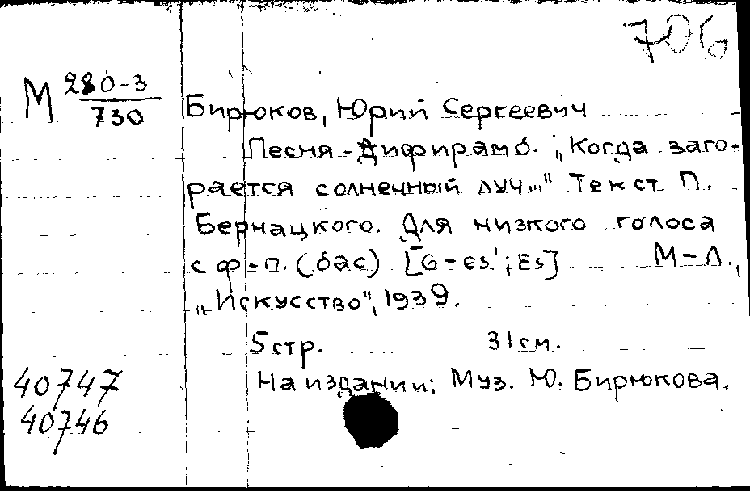 706
М 280-3
730
Бирюков, Юрий Сергеевич
Песня-Дифирамб. „Когда заго-
рается солнечный луч..." Текст П.
Бернацкого. Для низкого голоса
с ф-п. (бас) [G-es'; Es] М-Л.,
„Искусство", 1939.
5 стр. 31 см.
На издании: Муз. Ю. Бирюкова.
40747
40746